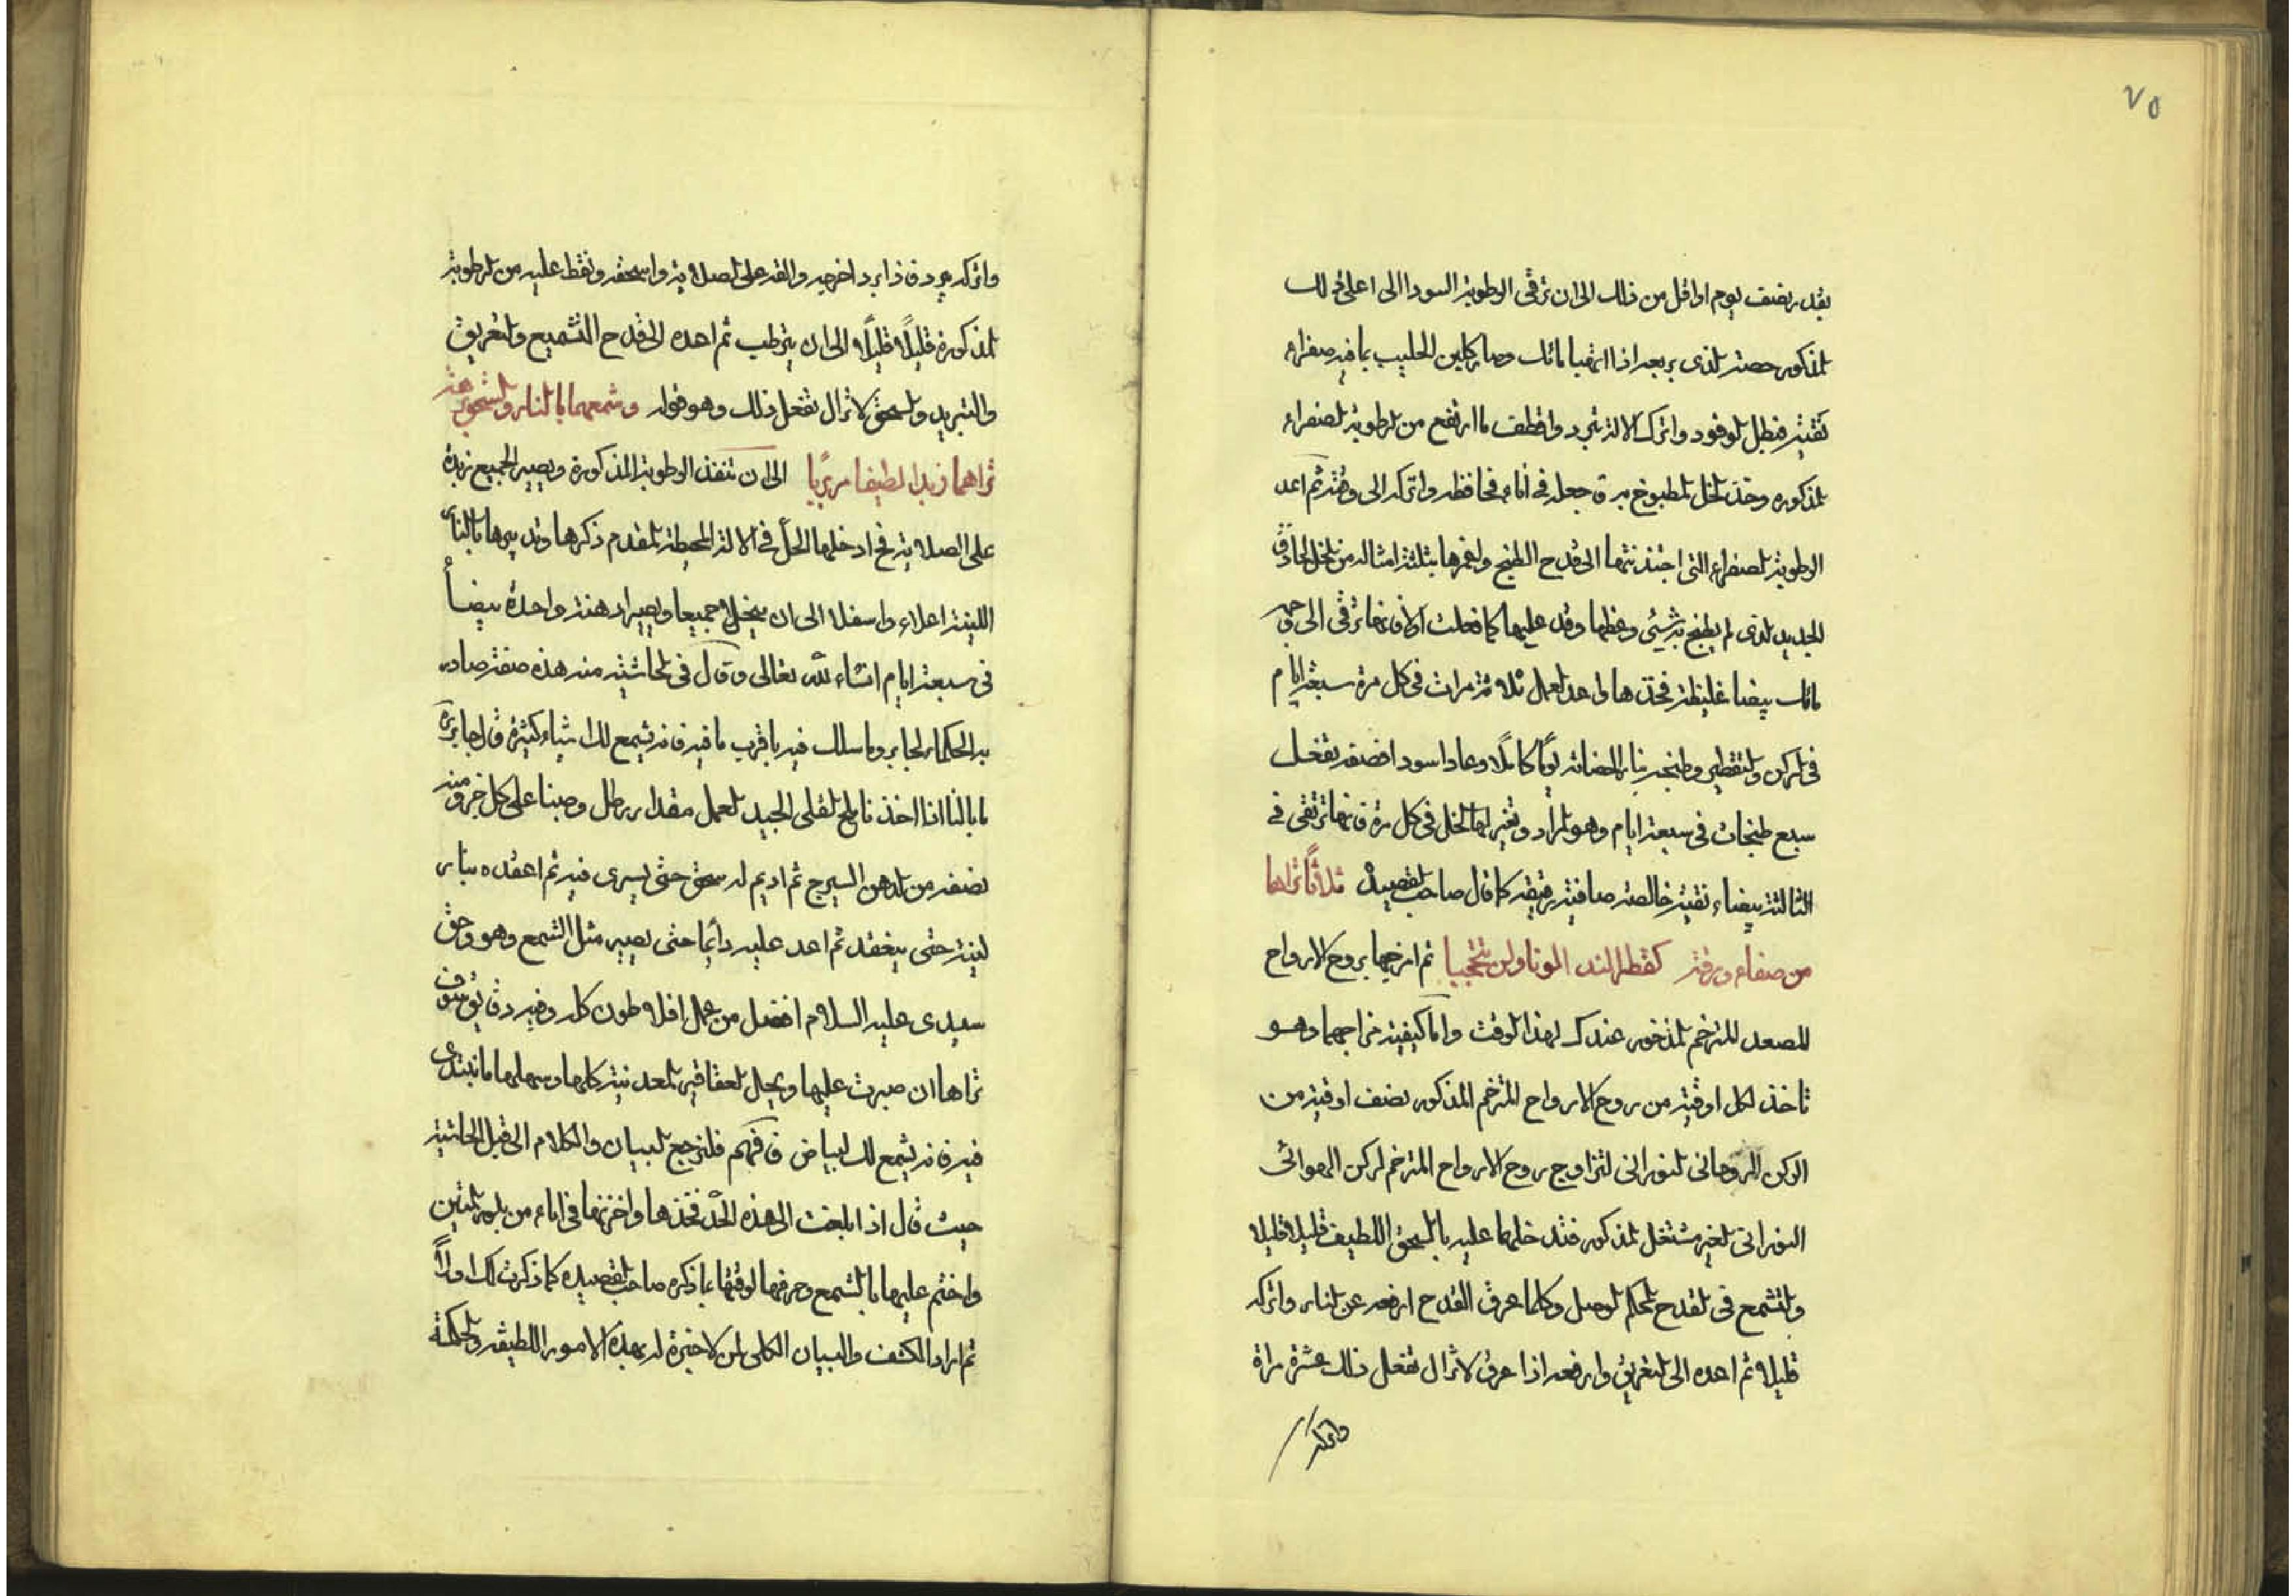 ٧٥
بقدر نصف يوم او اقل من ذلك الى ان ترقى الرطوبة السودا الى اعلى ذلك
المذكور حصة الذى بربعه اذا ارتقيا مائك وصار كلبن الحليب بما فيه صفراء
نقية فبطل الوقود واترك الالة تبرد واقطف ما ارتفع من الرطوبة الصفراء
المذكوره وخذ الخل المطبوخ به فاجعله فى اناء فحافظه واتركه الى وقته ثم اعد
الرطوبة الصفراء التى اجتذبتها الى قدح الطبخ واغمرها بثلثة امثاله من الخل الحاذق
الجديد الذى لم يطبخ به شيئ وغطها وقد عليها كما فعلت اولا فانها ترقى الى وجه
مائك بيضا غليظة فخذها واعد العمل ثلاثة مرات فى كل مرة سبعة ايام
فى الركن والتقطير وطبخه بنار الحضانة يوما كاملا وعاد اسودا فضفه تفعل
سبع طبخات فى سبعة ايام وهو المراد وتغير لها الخل فى كل مرة فانها ترتقى فى
الثالثة بيضاء نقية خالصة صافية رقيقه كما قال صاحب القصيدة ثلاثا تراها
من صفاء ورقة كقطر الندا لونا ولن تتحجبا ثم امزجها بروح الارواح
المصعد المترخم المذخور عندك لهذا الوقت واما كيفية مزاجهما وهو
تاخذ لكل اوقية من روح الارواح المترخم المذكور نصف اوقية من
الركن الروحانى النورانى لتزاوج روح الارواح المترخم لركن الهوائى
النورانى الغير مشتعل المذكور فتدخلهما عليه بالسحق اللطيف قليلا قليلا
والتشمع فى القدح المحكم الوصل وكلما عرق القدح ارفعه عن النار واتركه
قليلا ثم اعده الى التغريق وارفعه اذا عرق لا تزال تفعل ذلك عشرة مراة
واتركه
واتركه يبرد فاذا برد اخرجه والقه على الصلاية واسحقه ونقط عليه من الرطوبة
المذكورة قليلا قليلا الى ان يترطب ثم اعده الى قدح التشميع والتغريق
والتبريد والسحق لا تزال تفعل ذلك وهو قوله وشمعهما بالنار والسحق برهة
تراهما زبدا لطيفا مربيا الى ان تنفذ الرطوبة المذكورة ويصير الجميع زبدة
على الصلاية فح ادخلها الحل فى الالة المحيطة المقدم ذكرها وتدبيرها بالنار
اللينة اعلاه واسفله الى ان ينحل جميعا ويصيرا دهنة واحدة بيضأ
فى سبعة ايام انشاء الله تعالى وقال فى الحاشية منه هذه صفة صادر
به الحكماء لجابر وما سلك فيه باقرب ما فيه فانه يشمع لك اشياء كثيرة قال جابر
ما بالنا اذا اخذنا ملح القلى الجيد العمل مقدار رطل وصبنا على كل جزو منه
نصفه من الدهن السيرج ثم اديم له سحق حتى يسرى فيه ثم اعقده بنار
لينة حتى ينعقد ثم اعد عليه دائما حتى يصير مثل الشمع وهو وحق
سيدى عليه السلام افضل من عمل افلاطون كله وفيه دقايق سوف
تراها ان صبرت عليها ويحل العقاقير المعدنية كلها وسهلها ما نبتدى
فيه فانه يشمع لك لبياض فافهم فلنرجع لبيان والكلام الى قبل الحاشية
حيث قال اذا بلغت الى هذه الحد فخذها واخزنها فى اناء من بلور ثمين
واختم عليها بالشمع وحرفها لوقتها ما ذكره صاحب القصيده كما ذكرت لك اولا
ثم اراد الكشف والبيان الكلى لمن لا خبرة له بهذه الامور اللطيفه والحكمة